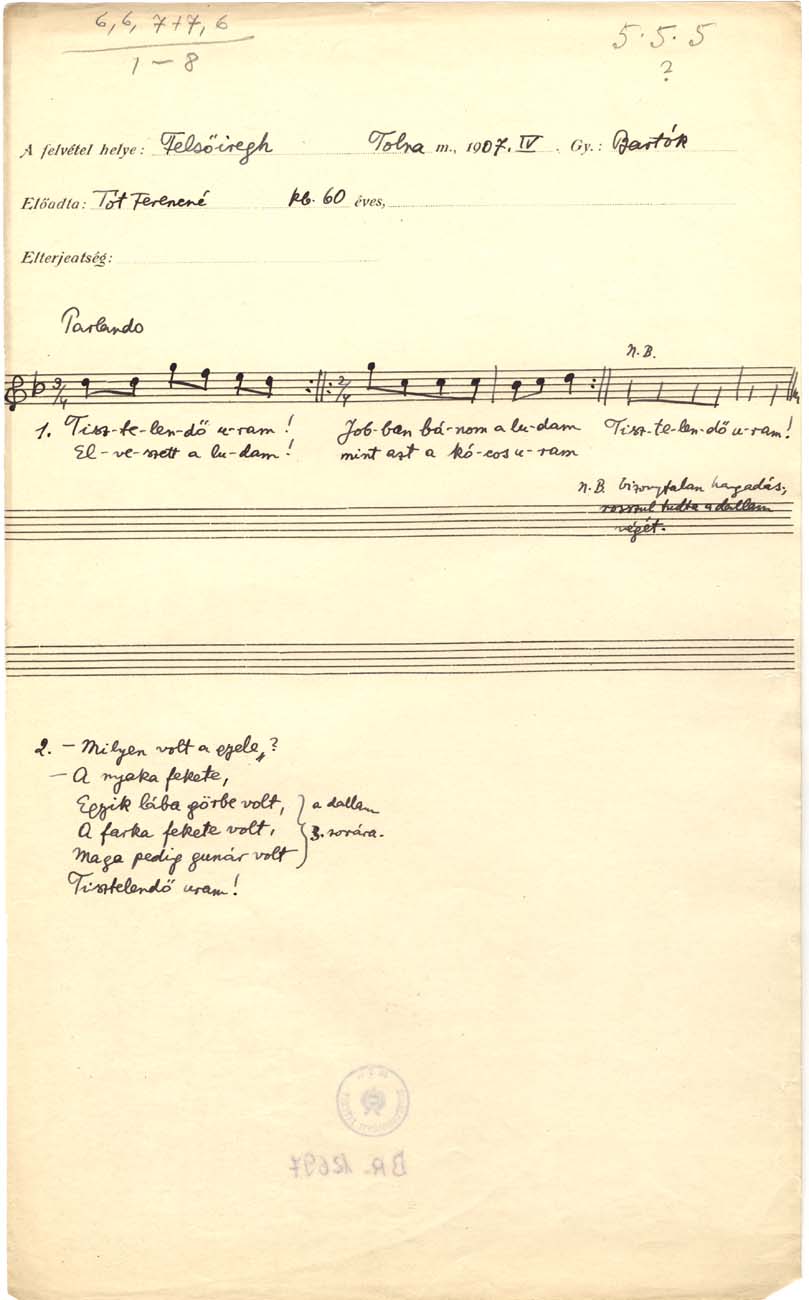 6, 6, 7+7, 6
1 – 8
5. 5. 5
?
A felvétel helye: Felsőiregh Tolna m., 1907. IV. Gy.: Bartók
Előadta: Tót Ferencné kb. 60 éves,
Elterjeatség:
Parlando
N.B.
3/4 2/4
1. Tisz-te-len-dő u-ram! Job-ban bá-nom a lu-dam Tisz-te-len-dő u-ram!
El-ve-szett a lu-dam! mint azt a kó-cos u-ram
N.B. bizonytalan hangadás;
rosszul tudta a dallam
végét.
2. – Milyen volt a eleje?
– A nyaka fekete,
Egyik lába görbe volt, a dallam
A farka fekete volt, 3. sorára.
Maga pedig gunár volt
Tisztelendő uram!
BR. 12697